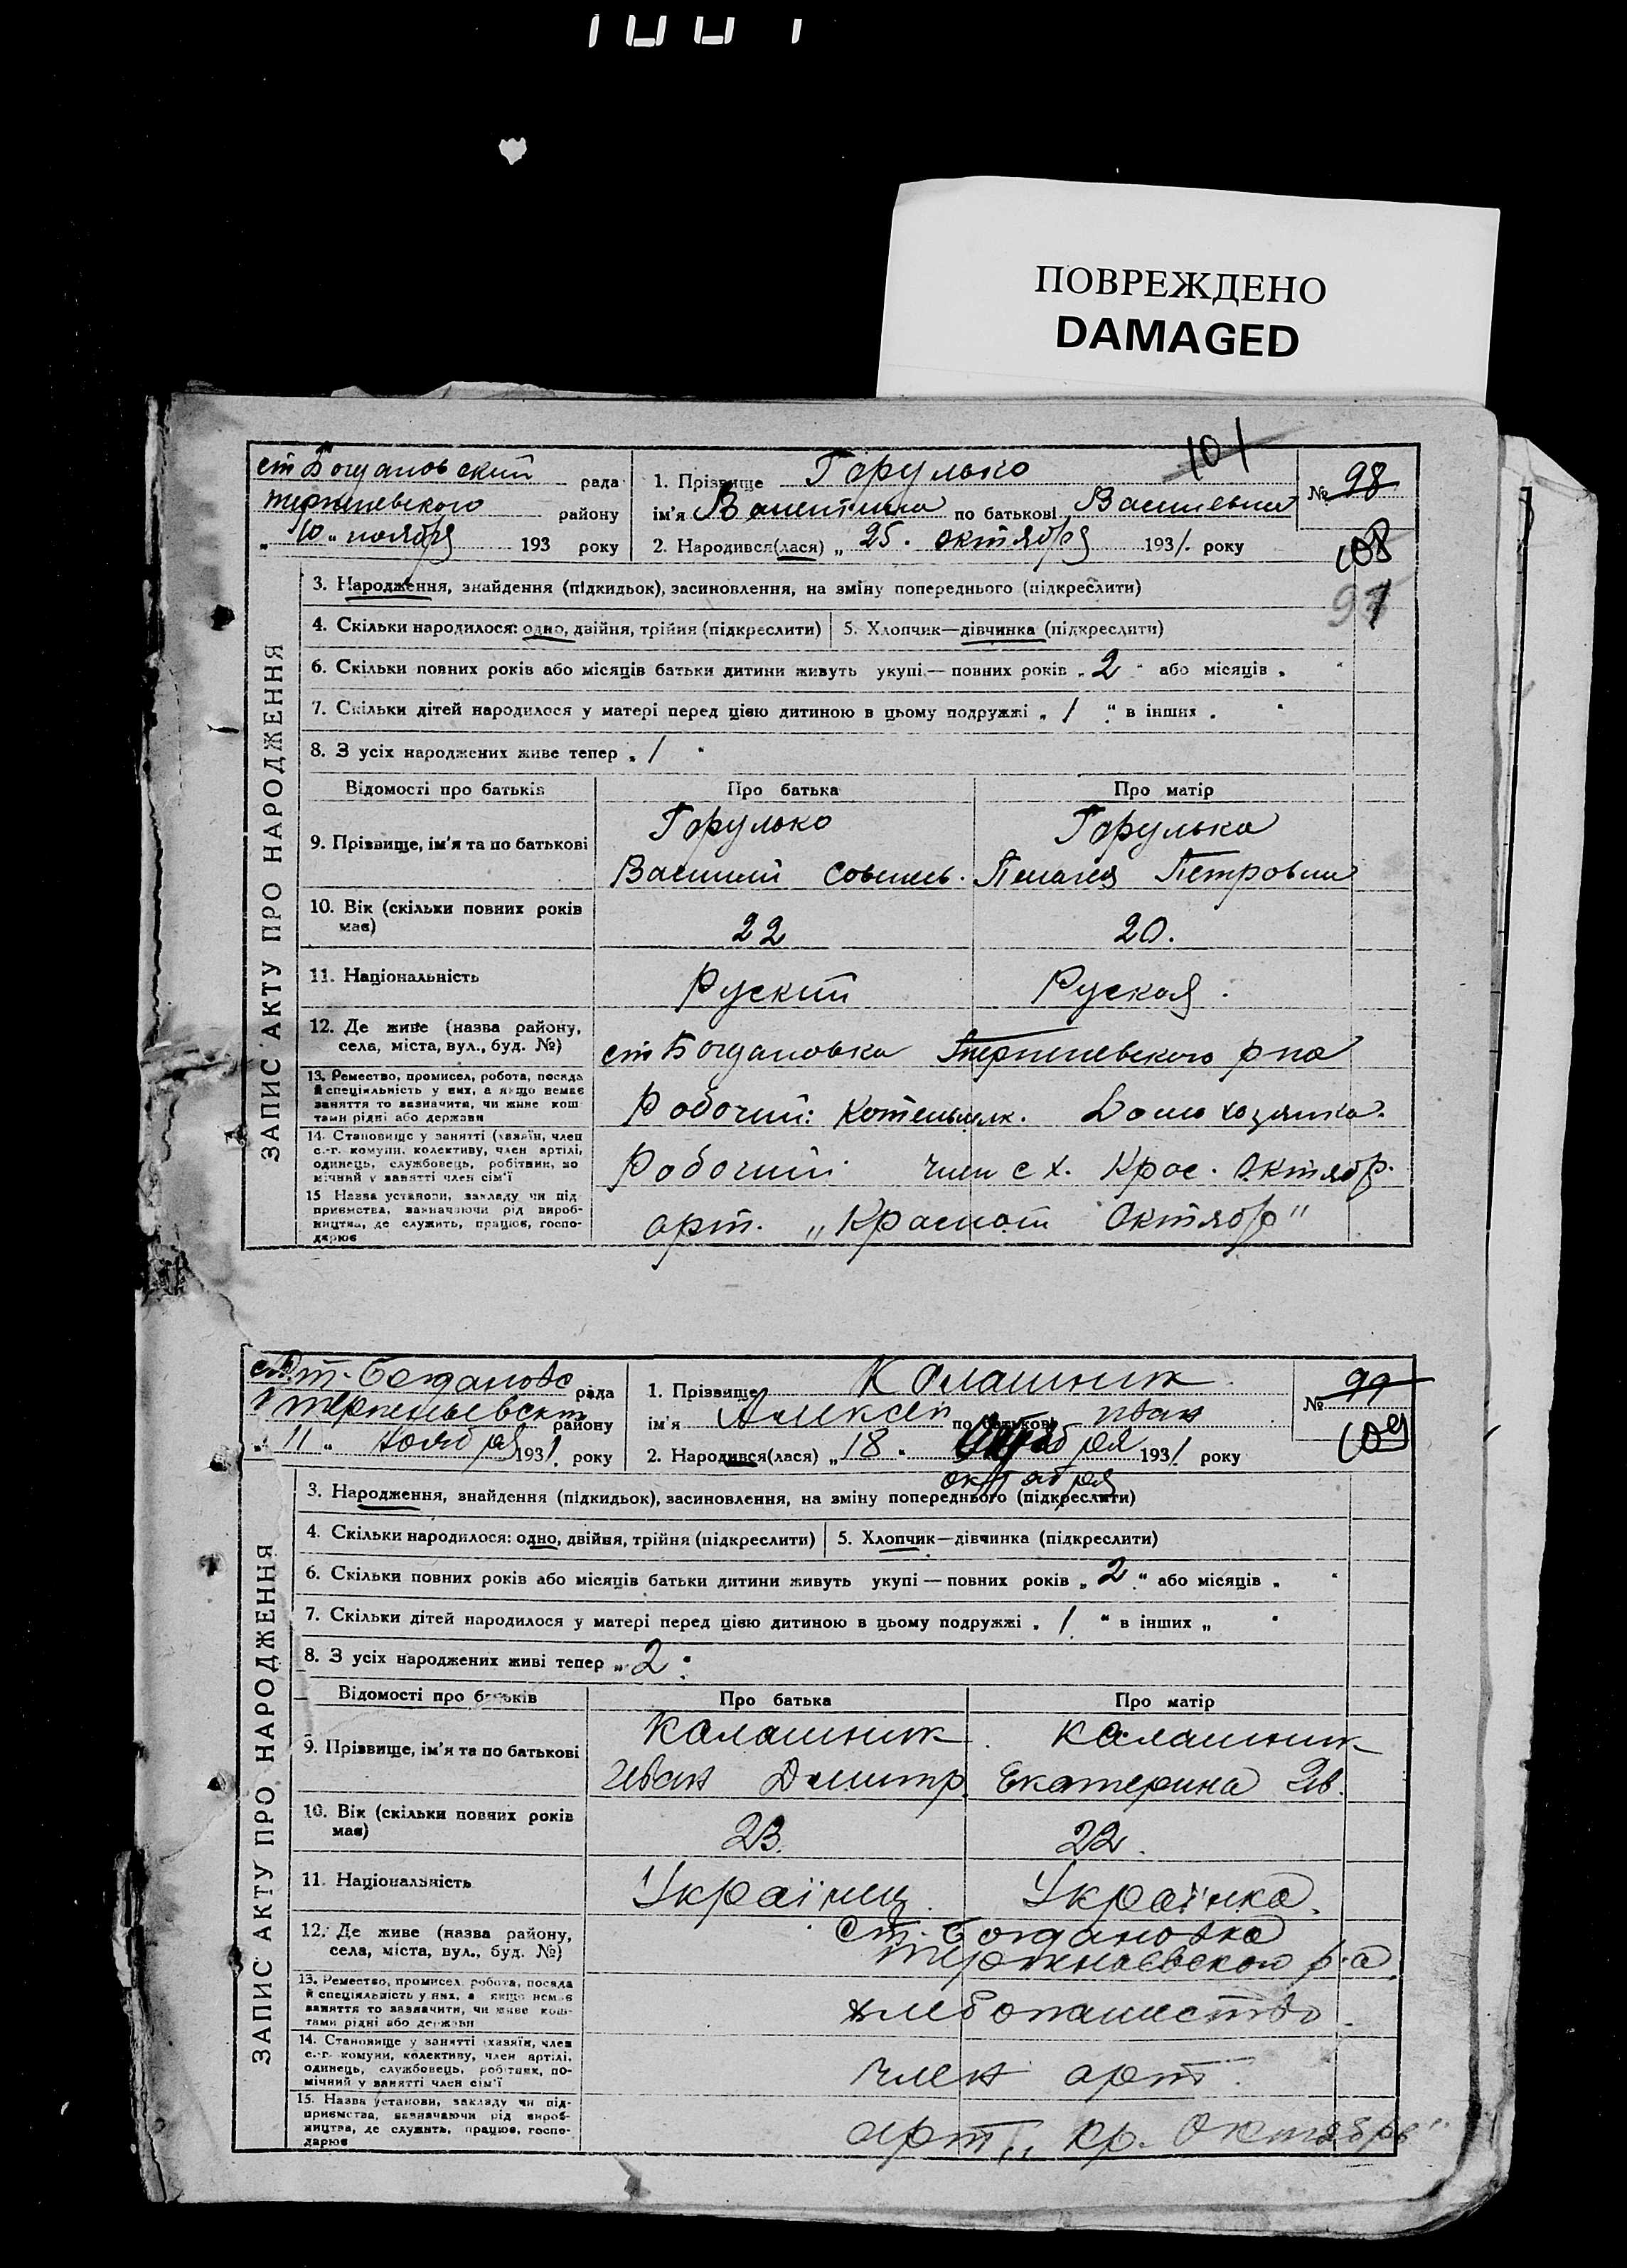 ПОВРЕЖДЕНО
DAMAGED
ст Богдановский рада
района
„10„ ноября 193 року
1. Прізвище Горулько
101
ім'я Валентина по батькові Васильевна
2. Народився(лася) „25. октября 1931. року
№ 98
108
97
ЗАПИС АКТУ ПРО НАРОДЖЕННЯ
3. Народження, знайдення (підкидьок), засиновлення, на зміну попереднього (підкреслити)
4. Скільки народилося: одно, двійня, трійня (підкреслити)
5. Хлопчик—дівчинка (підкреслити)
6. Скільки повних років або місяців батьки дитини живуть укупі—повних років „2" або місяців „ "
7. Скільки дітей народилося у матері перед цією дитиною в цьому подружжі „1" в інших „ "
8. З усіх народжених живе тепер „1"
Відомості про батьків
Про батька
Про матір
9. Прізвище, ім'я та по батькові
Горулько
Василий Совельев.
Горулька
Пелагея Петровна
10. Вік (скільки повних років має)
22
20.
11. Національність
Руский
Руская.
12. Де живе (назва району,
села, міста, вул., буд. №)
ст Богдановка р на
13. Ремество, промисел, робота, посада
й спеціяльність у них, а якщо немає
заняття то зазначити, чи живе кош-
тами рідні або держави
Робочий: Котельщик. Домохозяйка.
14. Становище у занятті (хазяїн, член
с.-г. комуни, колективу, член артілі,
одинець, службовець, робітник, по-
мічний у занятті член сім'ї
Робочий член с х. Крас. Октябр.
15 Назва установи, закладу чи під-
приємства, зазначаючи рід вироб-
ництва, де служить, працює, госпо-
дарює
арт. „Красный Октябр"
ст. Богдановс рада
району
„11„ ноября 1931. року
1. Прізвище Калашник.
ім'я Алексей по батькові Иван
2. Народився(лася) „18" 1931 року
октября
№ 99
109
ЗАПИС АКТУ ПРО НАРОДЖЕННЯ
3. Народження, знайдення (підкидьок), засиновлення, на зміну попереднього (підкреслити)
4. Скільки народилося: одно, двійня, трійня (підкреслити)
5. Хлопчик—дівчинка (підкреслити)
6. Скільки повних років або місяців батьки дитини живуть укупі—повних років „2" або місяців „ "
7. Скільки дітей народилося у матері перед цією дитиною в цьому подружжі „1" в інших „ "
8. З усіх народжених живі тепер „2"
Відомості про батьків
Про батька
Про матір
9. Прізвище, ім'я та по батькові
Калашник
Иван Дмитр.
Калашник
Екатерина Ив.
10. Вік (скільки повних років
має)
23.
22.
11. Національність
Українец
Українка.
12. Де живе (назва району,
села, міста, вул., буд. №)
Ст. Богдановка
р-а
13. Ремество, промисел, робота, посада
й спеціяльність у них, а якщо немає
заняття то зазначити, чи живе кош-
тами рідні або держави
хлебопашество.
14. Становище у занятті (хазяїн, член
с.-г. комуни, колективу, член артілі,
одинець, службовець, робітник, по-
мічний у занятті член сім'ї
член арт.
15. Назва установи, закладу чи під-
приємства, зазначаючи рід вироб-
ництва, де служить, працює, госпо-
дарює
арт „Кр. Октябрь"